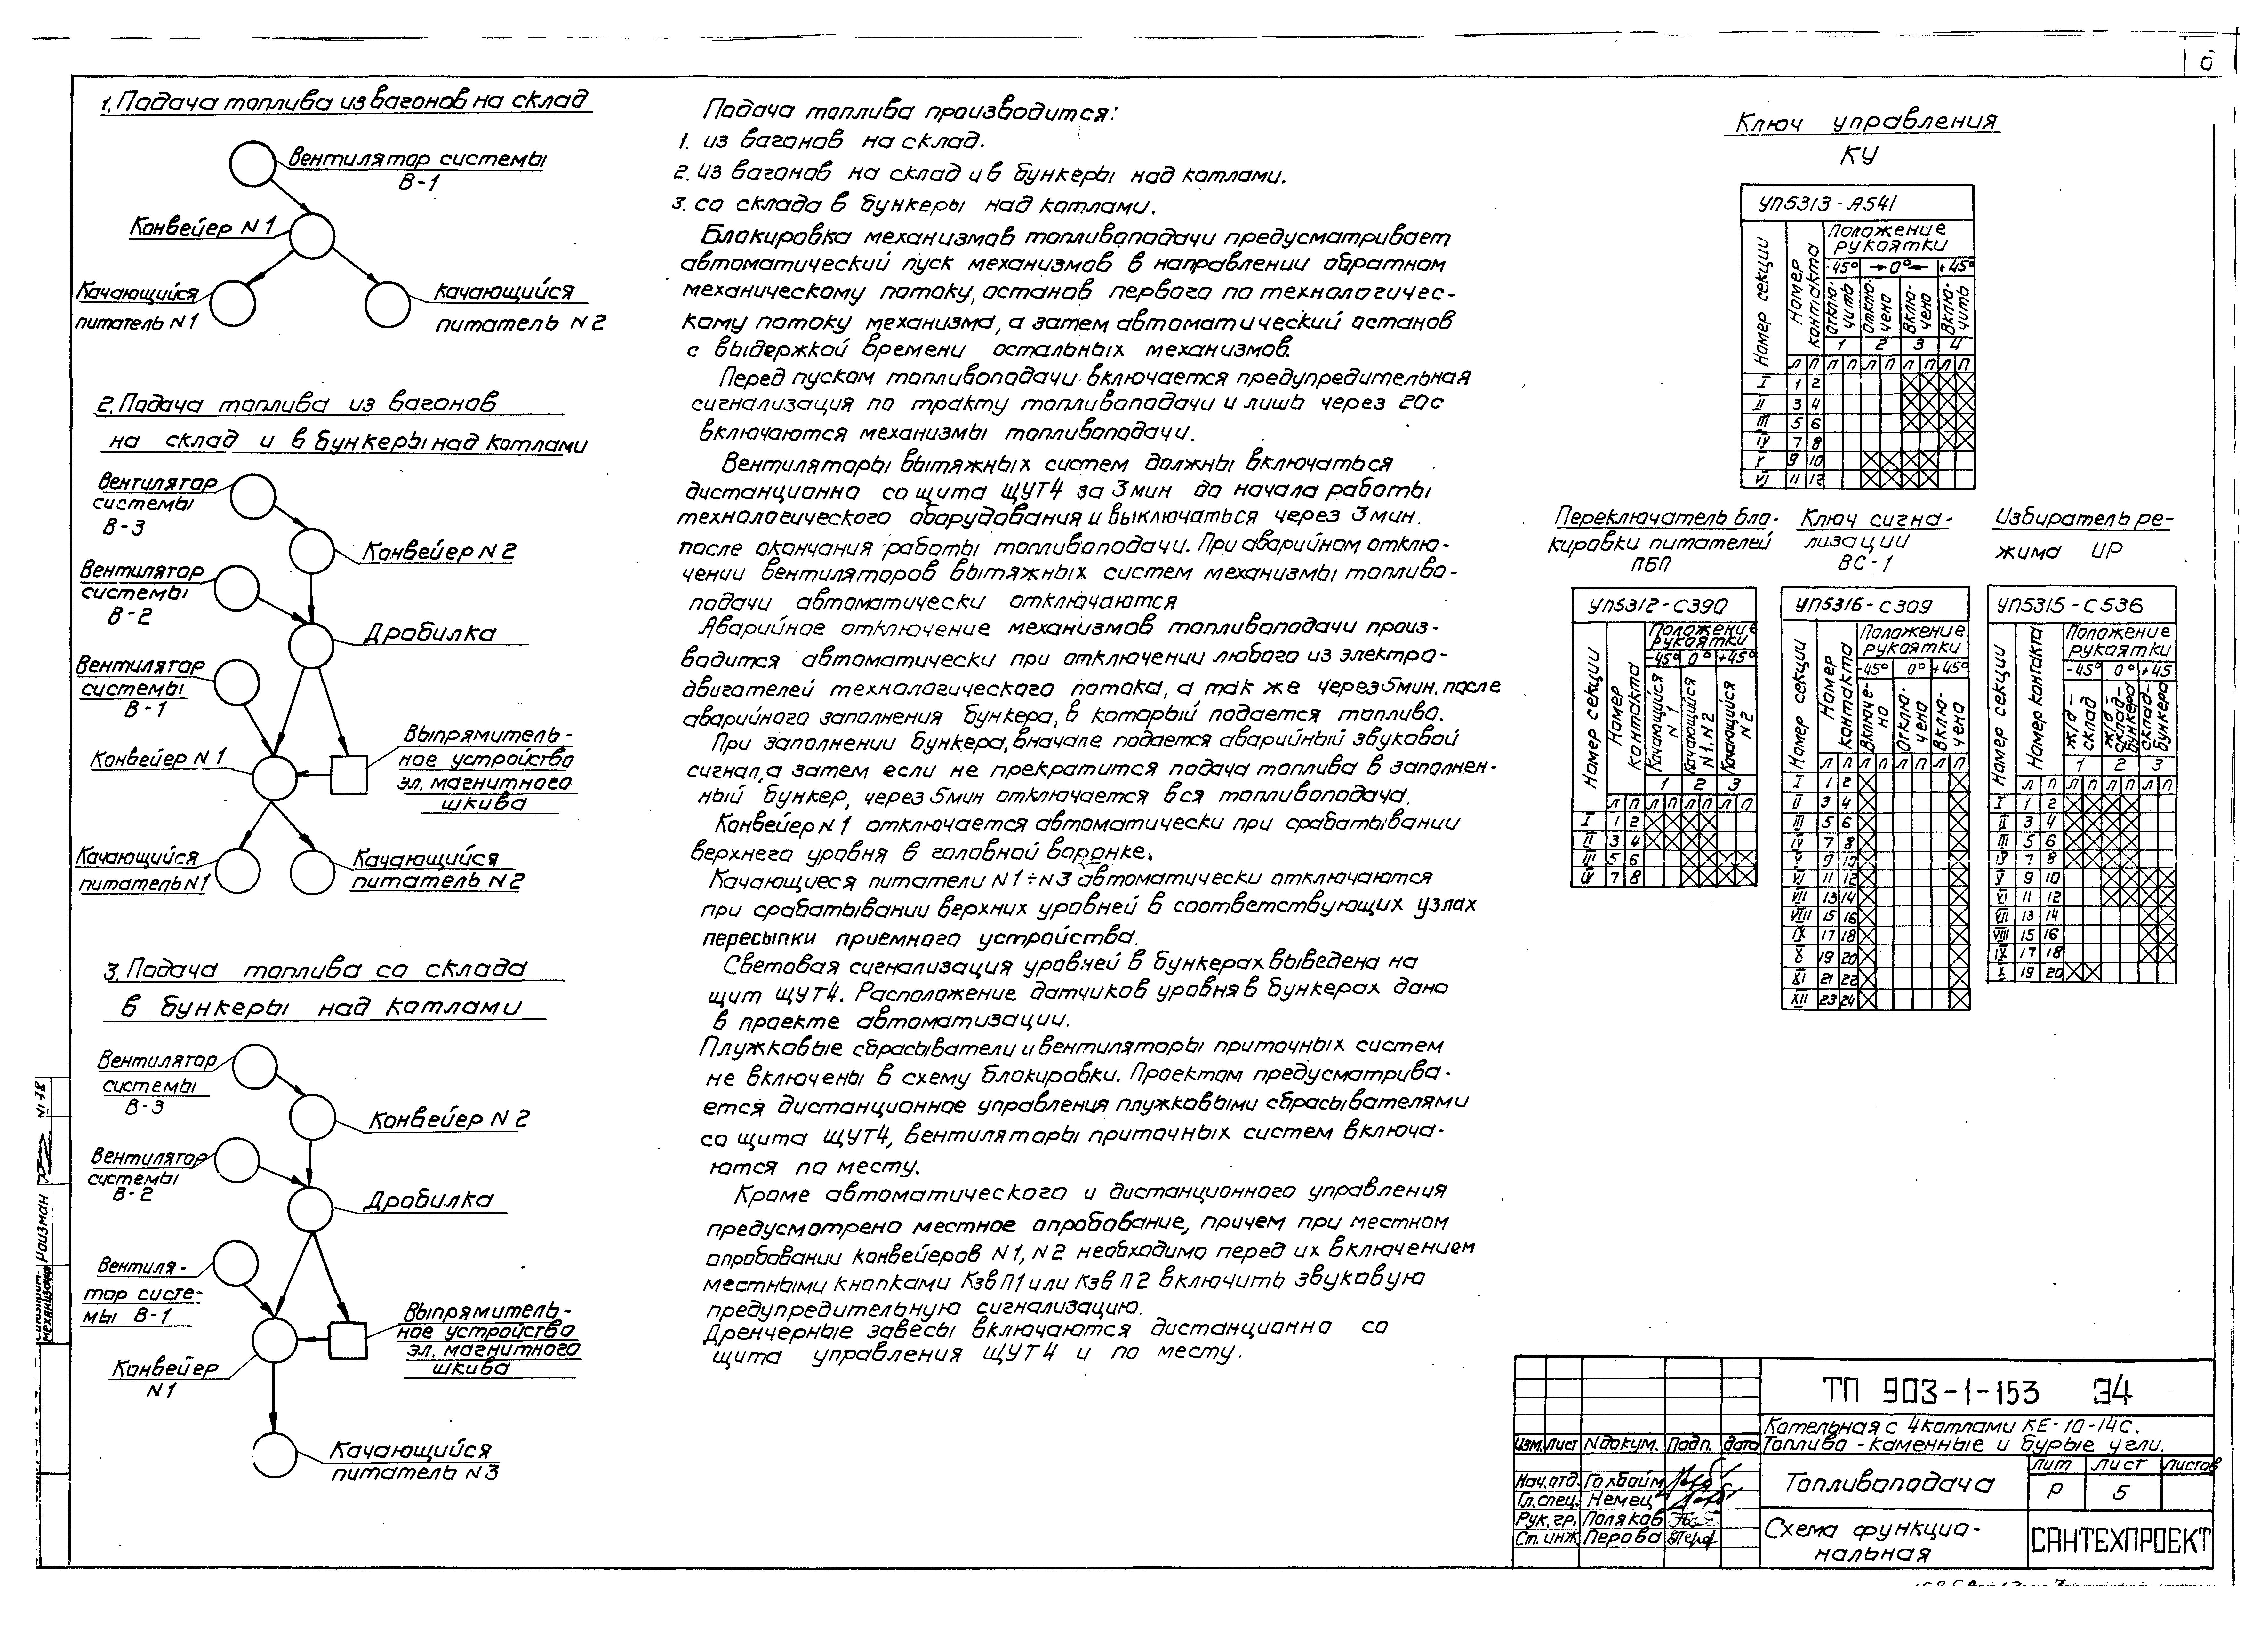 6
1. Подача топлива из вагонов на склад
Вентилятор системы
В-1
Конвейер N1
Качающийся
питатель N1
качающийся
питатель N2
2. Подача топлива из вагонов
на склад и в бункеры над котлами
Вентилятор
системы
В-3
Конвейер N2
Вентилятор
системы
В-2
Дробилка
Вентилятор
системы
В-1
Выпрямитель-
ное устройство
эл. магнитного
шкива
Конвейер N1
Качающийся
питатель N1
Качающийся
питатель N2
3. Подача топлива со склада
в бункеры над котлами
Вентилятор
системы
В-3
Конвейер N2
Вентилятор
системы
В-2
Дробилка
Вентиля-
тор систе-
мы В-1
Выпрямитель-
ное устройство
эл. магнитного
шкива
Конвейер
N1
Качающийся
питатель N3
Подача топлива производится:
1. из вагонов на склад.
2. из вагонов на склад и в бункеры над котлами.
3. со склада в бункеры над котлами.
Блокировка механизмов топливоподачи предусматривает
автоматический пуск механизмов в направлении обратном
механическому потоку, останов первого по технологичес-
кому потоку механизма, а затем автоматический останов
с выдержкой времени остальных механизмов.
Перед пуском топливоподачи включается предупредительная
сигнализация по тракту топливоподачи и лишь через 20с
включаются механизмы топливоподачи.
Вентиляторы вытяжных систем должны включаться
дистанционно со щита ЩУТ4 за 3мин до начала работы
технологического оборудования и выключаться через 3мин.
после окончания работы топливоподачи. При аварийном отклю-
чении вентиляторов вытяжных систем механизмы топливо-
подачи автоматически отключаются
Аварийное отключение механизмов топливоподачи произ-
водится автоматически при отключении любого из электро-
двигателей технологического потока, а так же через 5мин. после
аварийного заполнения бункера, в который подается топливо.
При заполнении бункера, вначале подается аварийный звуковой
сигнал, а затем если не прекратится подача топлива в заполнен-
ный бункер, через 5мин отключается вся топливоподача.
Конвейер N1 отключается автоматически при срабатывании
верхнего уровня в головной воронке.
Качающиеся питатели N1÷N3 автоматически отключаются
при срабатывании верхних уровней в соответствующих узлах
пересыпки приемного устройства.
Световая сигнализация уровней в бункерах выведена на
щит ЩУТ4. Расположение датчиков уровня в бункерах дано
в проекте автоматизации.
Плужковые сбрасыватели и вентиляторы приточных систем
не включены в схему блокировки. Проектом предусматрива-
ется дистанционное управления плужковыми сбрасывателями
со щита ЩУТ4, вентиляторы приточных систем включа-
ются по месту.
Кроме автоматического и дистанционного управления
предусмотрено местное опробование, причем при местном
опробовании конвейеров N1, N2 необходимо перед их включением
местными кнопками КзвП1 или КзвП2 включить звуковую
предупредительную сигнализацию.
Дренчерные завесы включаются дистанционно со
щита управления ЩУТ4 и по месту.
Ключ управления
КУ
УП5313-А541
Номер секции
Номер контакта
Положение рукоятки
-45° →0°← +45°
Отклю-чить
Отклю-чено
Вклю-чено
Вклю-чить
1 2 3 4
Л П Л П Л П Л П Л П
I 1 2
II 3 4
III 5 6
IV 7 8
V 9 10
VI 11 12
Переключатель бло-
кировки питателей
ПБП
УП5312-С390
Номер секции
Номер контакта
Положение рукоятки
-45° 0° +45°
Качающийся N1
Качающийся N1, N2
Качающийся N2
1 2 3
Л П Л П Л П Л П
I 1 2
II 3 4
III 5 6
IV 7 8
Ключ сигна-
лизации
ВС-1
УП5316-С309
Номер секции
Номер контакта
Положение рукоятки
-45° 0° +45°
Включе-но
Отклю-чено
Вклю-чено
Л П Л П Л П Л П
I 1 2
II 3 4
III 5 6
IV 7 8
V 9 10
VI 11 12
VII 13 14
VIII 15 16
IX 17 18
X 19 20
XI 21 22
XII 23 24
Избиратель ре-
жима ИР
УП5315-С536
Номер секции
Номер контакта
Положение рукоятки
-45° 0° +45
ж/д-склад
ж/д-склад-бункера
склад-бункера
1 2 3
Л П Л П Л П Л П
I 1 2
II 3 4
III 5 6
IV 7 8
V 9 10
VI 11 12
VII 13 14
VIII 15 16
IX 17 18
X 19 20
Роизман
механизация
ТП 903-1-153 Э4
Котельная с 4 котлами КЕ-10-14С.
Топливо - каменные и бурые угли.
Изм. Лист N докум. Подп. дата
Нач. отд. Голбойм
Гл. спец. Немец
Рук. гр. Поляков
Ст. инж. Перова
Топливоподача
Лит Лист Листов
Р 5
Схема функцио-
нальная
САНТЕХПРОЕКТ